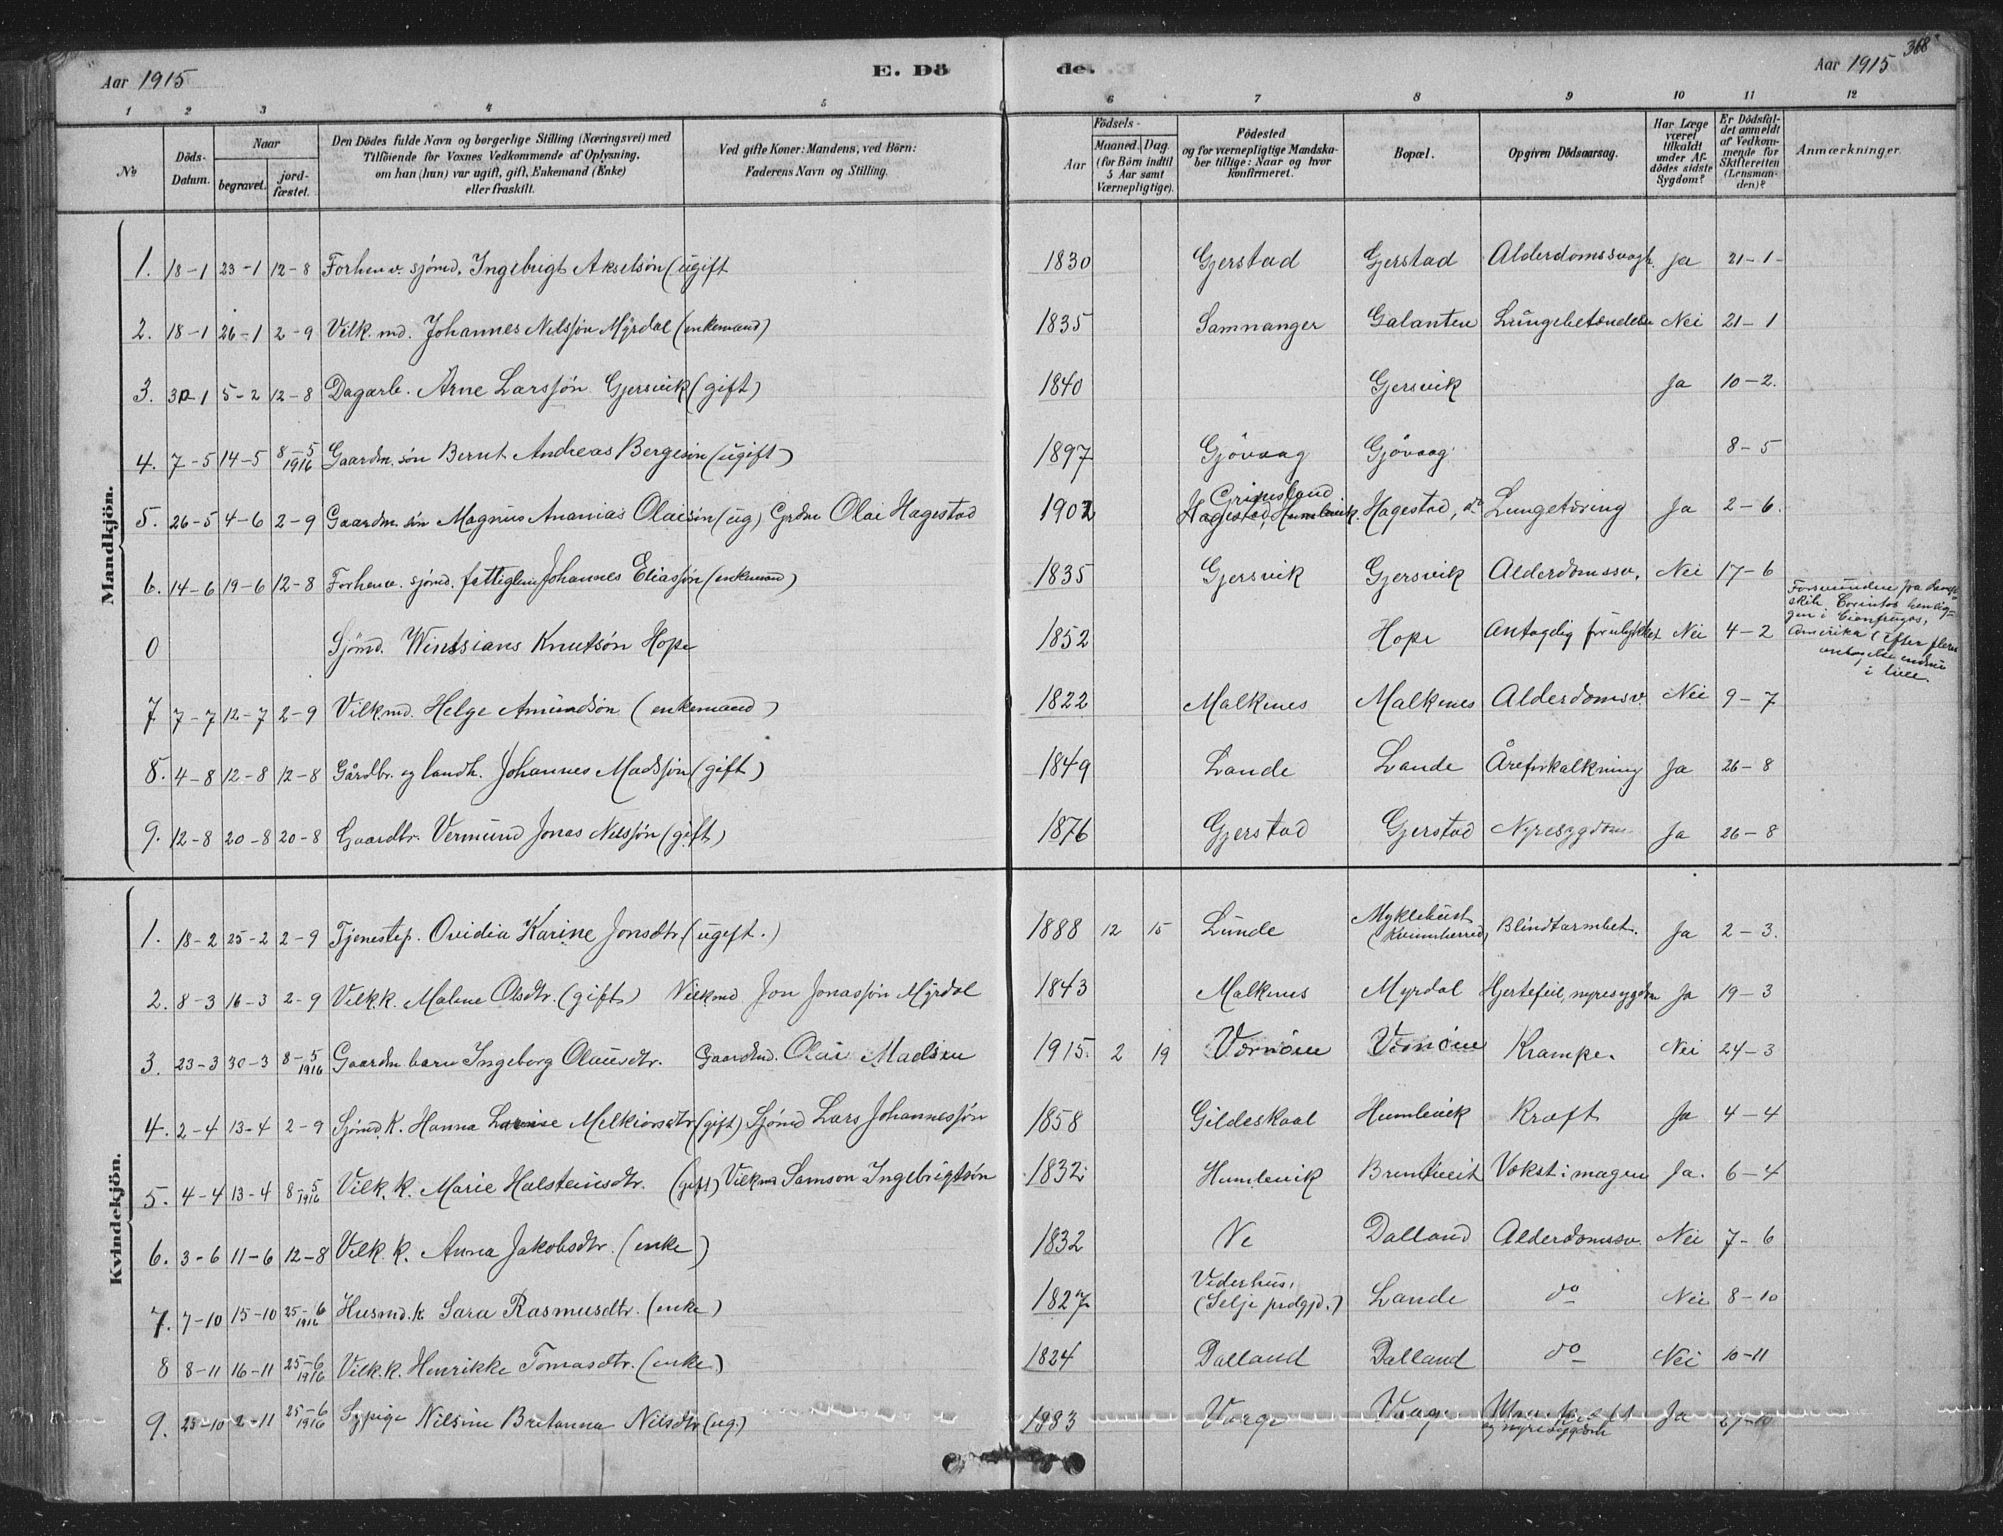 368
Aar 1915
E. Dö
de.
Aar 1915
1 2 3 4 5 6 7 8 9 10 11 12
No
Döds-Datum.
Naar
begravet.
jord-fæstet.
Den Dödes fulde Navn og borgerlige Stilling (Næringsvei) med
Tilföiende for Voxnes Vedkommende af Oplysning,
om han (hun) var ugift, gift, Enkemand (Enke)
eller fraskilt.
Ved gifte Koner: Mandens, ved Börn:
Faderens Navn og Stilling.
Födsels-
Aar
Maaned. Dag.
(for Börn indtil
5 Aar samt
Værnepligtige).
Födested
og for værnepligtige Mandska-
ber tillige: Naar og hvor
konfirmeret.
Bopæl.
Opgiven Dödsaarsag.
Har Læge
været
tilkaldt
under Af-
dödes sidste
Sygdom?
Er Dödsfal-
det anmeldt
af Vedkom-
mende for
Skifteretten
(Lensman-
den)?
Anmærkninger.
Mandkjön.
1. 18-1 23-1 12-8 Forhenv. sjömd. Ingebrigt Akselsön (ugift 1830 Gjerstad Gjerstad Alderdomssvagh. Ja 21-1-
2. 18-1 26-1 2-9 Vilk.md. Johannes Nilssön Myrdal (enkemand) 1835 Samnanger Galanten Lungebetændelse Nei 21-1
3. 30-1 5-2 12-8 Dagarb. Arne Larssön Gjersvik (gift) 1840 Gjersvik Ja 10-2.
4. 7-5 14-5 8-5 1916 Gaardm. sön Bernt Andreas Bergesön (ugift) 1897 Gjövaag Gjövaag 8-5
5. 26-5 4-6 2-9 Gaardm. sön Magnus Ananias Olaisön (ug) Grdm Olai Hagestad 1902 Grimsland Hagestad, Humlevik. Hagestad, do Lungetæring Ja 2-6.
6. 14-6 19-6 12-8 Forhenv. sjömd. fattiglem Johannes Eliassön (enkemand) 1835 Gjersvik Gjersvik Alderdomssv. Nei 17-6
0 Sjömd. Knutsön Hope 1852 Hope Antagelig forulykket Nei 4-2 Forsvunden fra
skib Corintos henlig-
gen i Cienfuegos,
Amerika (Efter fleres
antagelse endnu
i live.
7 7-7 12-7 2-9 Vilk.md. Helge Amundsön (enkemand) 1822 Malkenes Malkenes Alderdomsv. Nei 9-7
8. 4-8 12-8 12-8 Gårdbr. og landh. Johannes Madssön (gift) 1849 Lande Lande Åreforkalkning Ja 26-8
9. 12-8 20-8 20-8 Gaardbr. Vermund Jonas Nilssön (gift) 1876 Gjerstad Gjerstad Nyresygdom Ja 26-8
Kvindekjön.
1. 18-2 25-2 2-9 Tjenestep. Ovidia Karine Jonsdtr. (ugift.) 1888 12 15 Lunde Myklebust (Kvinnherred) Blindtarmbet. Ja 2-3.
2. 8-3 16-3 2-9 Vilk.k. Malene Olsdtr. (gift) Vilkmd. Jon Jonassön Myrdal 1843 Malkenes Myrdal Hjertefeil, nyresygdom Ja 19-3
3. 23-3 30-3 8-5 1916 Gaardm. barn Ingeborg Olausdtr. Gaardmd. Olai Madsen 1915. 2 19 Værnöen Værnöen Krampe. Nei 24-3
4. 2-4 13-4 2-9 Sjömd. k. Hanna Melkiorsdtr. (gift) Sjömd Lars Johannessön 1858 Gildeskaal Humlevik Kræft Ja 4-4
5. 4-4 13-4 8-5 1916 Vilk. k. Marie Halsteinsdtr. (gift) Vilkmd Samson Ingebrigtsön 1832 Humlevik Brentveit Vækst i magen Ja. 6-4
6. 3-6 11-6 12-8 Vilk. k. Anna Jakobsdtr. (enke) 1832 Ve Dalland Alderdomssv. Nei 7-6
7. 7-10 15-10 25-6 1916 Husmd. k. Sara Rasmusdtr. (enke) 1827 Vederhus, (Selje prdgjd.) Lande do Nei 8-10
8 8-11 16-11 25-6 1916 Vilk.k. Henrikke Tomasdtr. (enke) 1824 Dalland Dalland do Nei 10-11
9. 25-10 2-11 25-6 1916 Sypige Nilsine Britanna Nilsdtr (ug.) 1883 Vaage og nyresygdom Ja 27-10